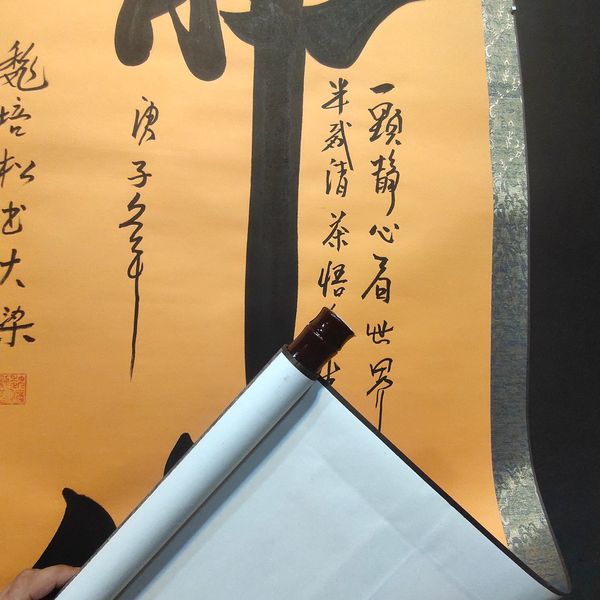 一顆静心看世界
半盏清茶悟
庚子冬年
魏培松书大梁